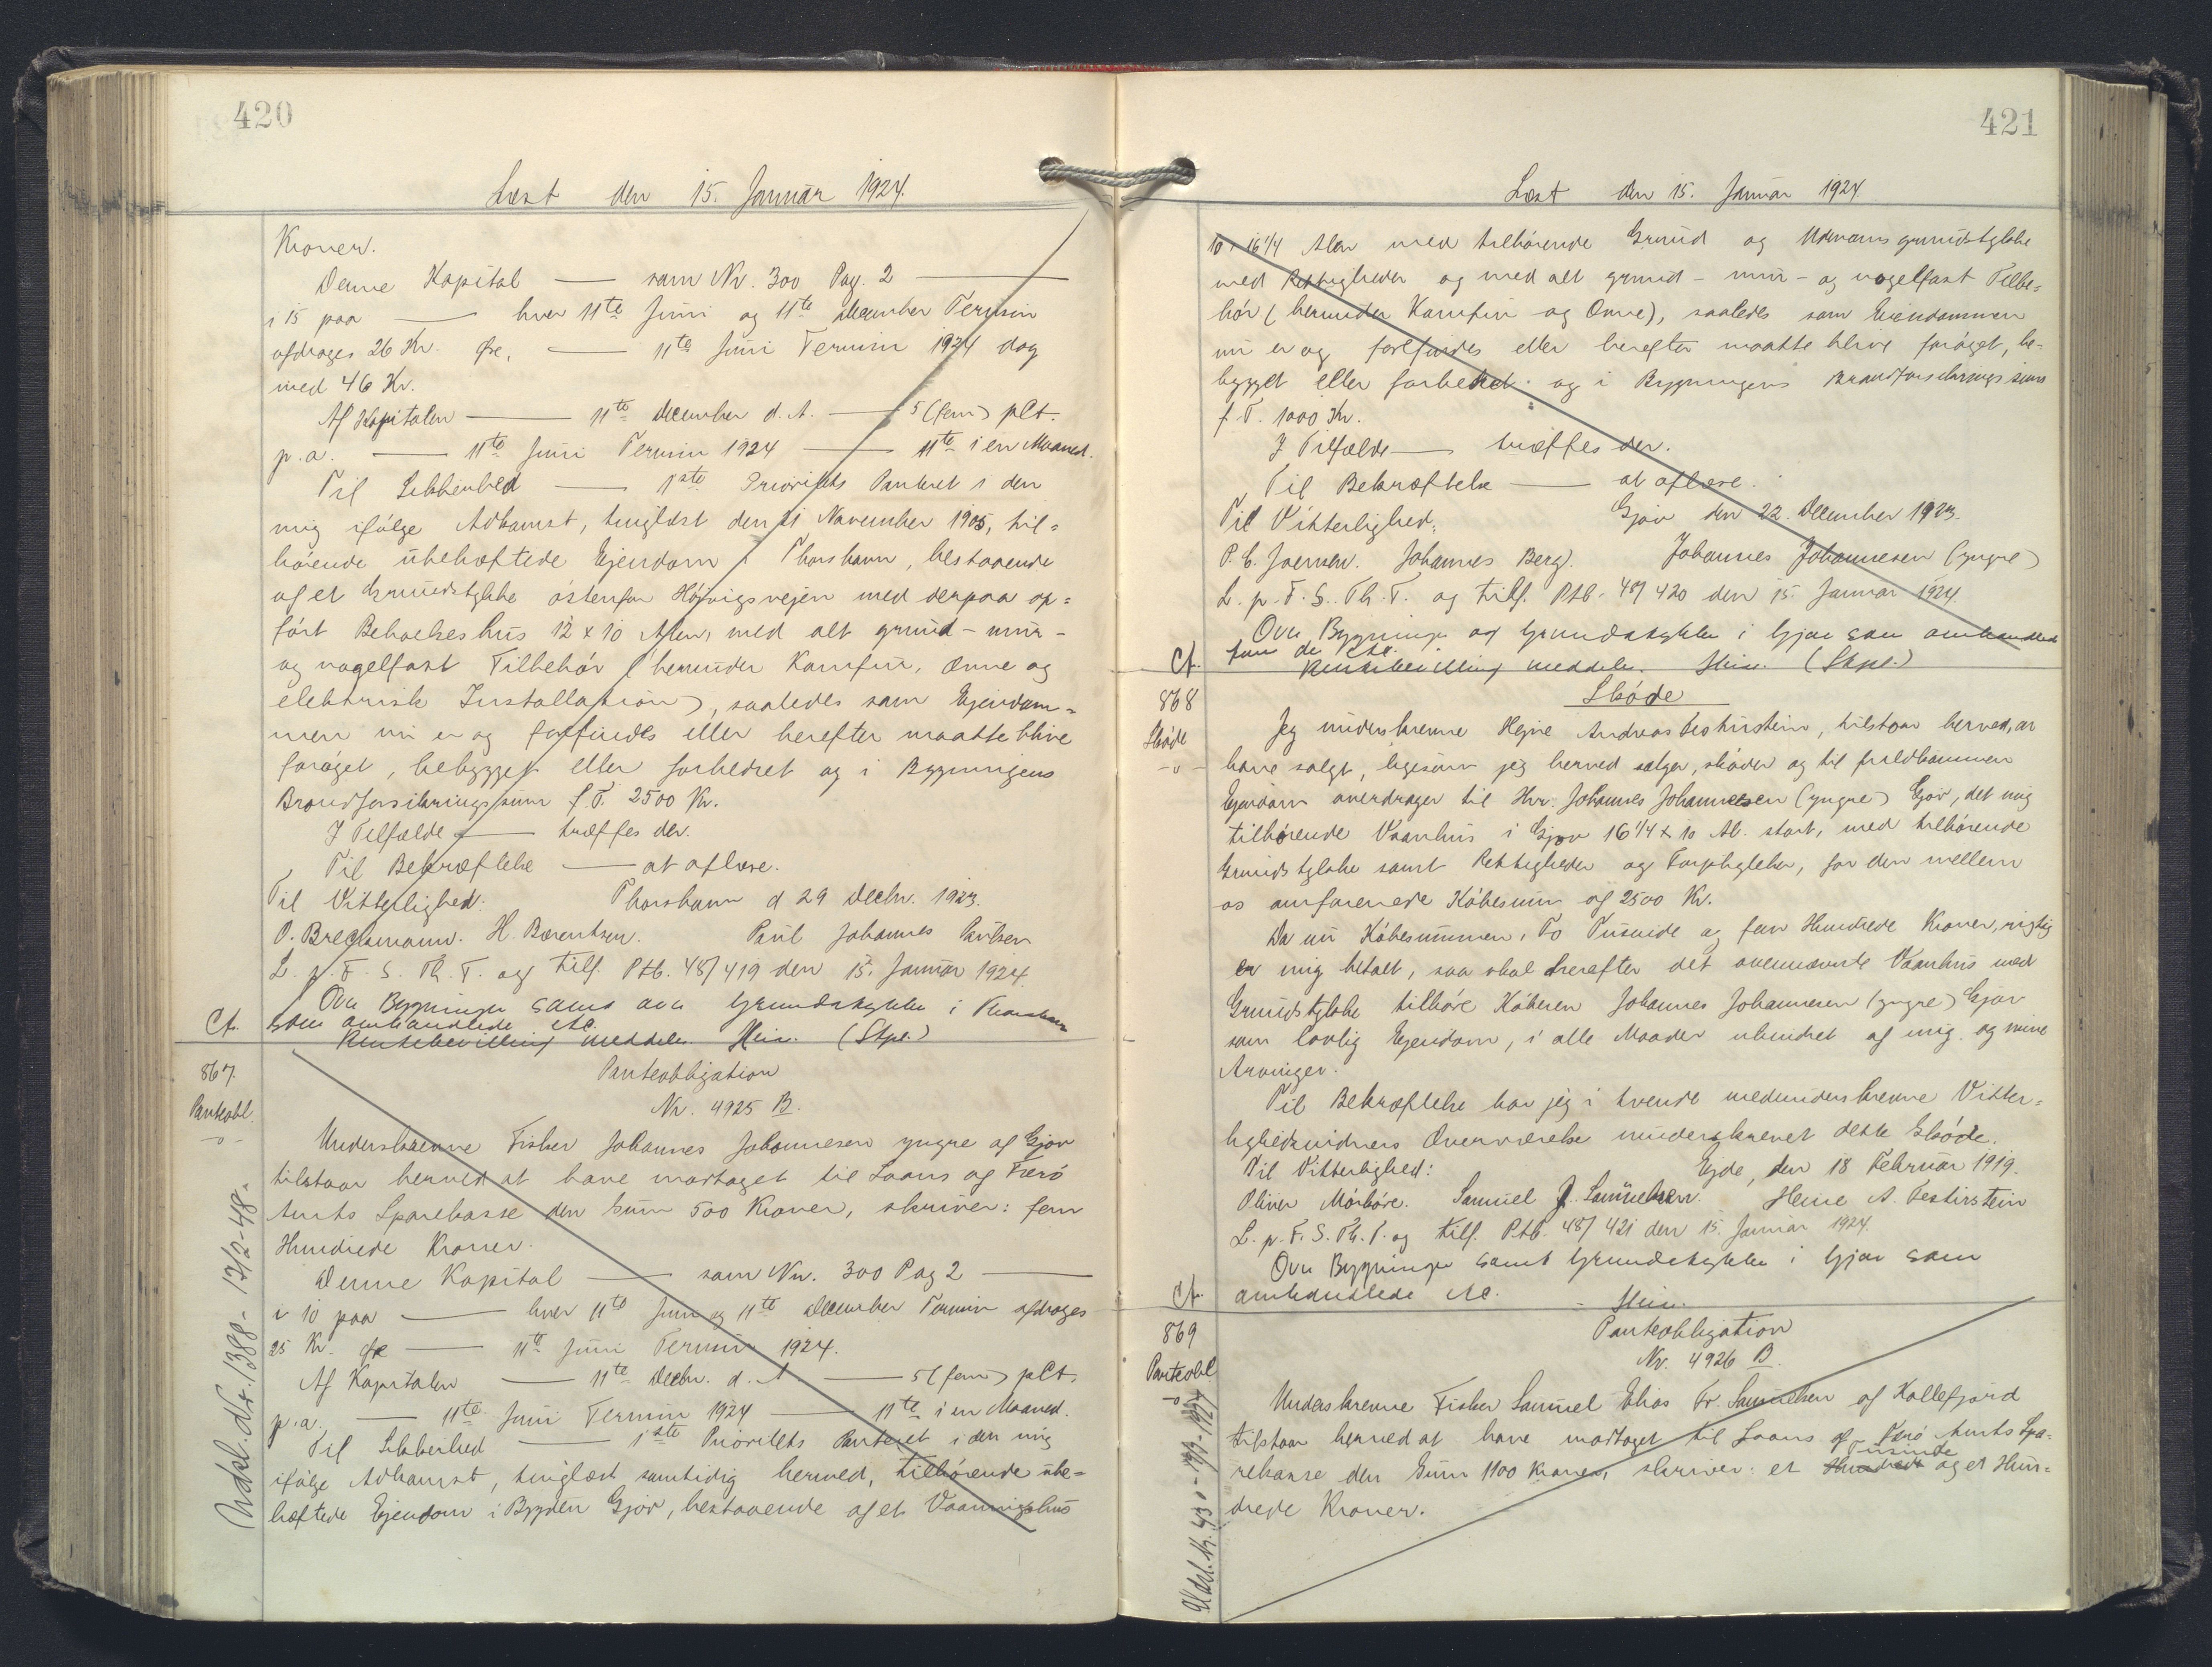 420
Læst den 15. Januar 1924.
Kroner.
Denne Kapital — som Nr. 300 Pag. 2 —
i 15 paa — hver 11te Juni og 11te December Termin
afdrages 26 Kr. Øre, — 11te Juni Termin 1924 dog
med 46 Kr.
Af Kapitalen — 11te December d. A. — 5 (fem) pCt.
p.a. — 11te Juni Termin 1924 — 11te i en Maaned.
Til Sikkerhed — 1ste Prioritets Panteret i den
mig ifølge Adkomst, tinglæst den 21 November 1905, til=
hørende ubehæftede Ejendom i Thorshavn, bestaaende
af et Grundstykke østenfor Hojvigsvejen med derpaa op=
ført Beboelseshus 12 x 10 Alen, med alt grund- mur-
og nagelfast Tilbehør (herunder Komfur, Ovne og
elektrisk Installation), saaledes som Ejendom=
men nu er og forfindes eller herefter maatte blive
forøget, bebygget eller forbedret og i Bygningens
Brandforsikringssum f. T. 2500 Kr.
I Tilfælde — træffes der.
Til Bekræftelse — at aflæse.
Til Vitterlighed: Thorshavn d 29 Decbr. 1923.
O. Breckmann. H. Barentsen. Paul Johannes Paulsen
L. p. F. S. Th. T. og tilf. Ptb. 48/419 den 15. Januar 1924.
Ovn Bygninger samt ovn Grundstykke i Thorshavn
Ct. som omhandlede &c.
Rentebevilling meddeles. Hein. (Stpl.)
867.
Panteobl.
-o-
Panteobligation
Nr. 4925 B.
Underskrevne Fisker Johannes Johannesen yngre af Gjov
tilstaar herved at have modtaget til Laans af Færö
Amts Sparekasse den Sum 500 Kroner, skriver: fem
Hundrede Kroner.
Denne Kapital — som Nr. 300 Pag 2 —
i 10 paa — hver 11te Juni og 11te December Termin afdrages
25 Kr. Øre — 11te Juni Termin 1924.
Af Kapitalen — 11te Decbr. d. A — 5 (fem) pCt.
p.a. — 11te Juni Termin 1924 — 11te i en Maaned.
Til Sikkerhed — 1ste Prioritets Panteret i den mig
ifølge Adkomst, tinglæst samtidig herved, tilhørende ube=
hæftede Ejendom i Bygden Gjov, bestaaende af et Vaaningshus
Udsl. Nr. 1388 - 13/2-48.
421
Læst den 15. Januar 1924
10 x 16 1/4 Alen med tilhørende Grund og Udmarksgrundstykke
med Rettigheder og med alt grund- mur- og nagelfast Tilbe=
hør (herunder Komfur og Ovne), saaledes som Ejendommen
nu er og forefindes eller herefter maatte blive forøget, be=
bygget eller forbedret og i Bygningens Brandforsikringssum
f. T. 1000 Kr.
I Tilfælde — træffes der.
Til Bekræftelse — at aflæse.
Til Vitterlighed: Gjov den 22. December 1923.
P. C. Joensen. Johannes Berg. Johannes Johannesen (yngre)
L. p. F. S. Th. T. og tilf. Ptb. 48/420 den 15. Januar 1924.
Ovn Bygninger og Grundstykke i Gjov som omhandlede
Ct. &c.
Rentebevilling meddeles. Hein. (Stpl.)
868
Skøde
-o-
Skøde
Jeg underskrevne Hejne Andreas Festirstein, tilstaar herved, at
have solgt, ligesom jeg herved sælger, skøder og til fuldkommen
Ejendom overdrager til Hr. Johannes Johannesen (yngre) Gjov, det mig
tilhørende Vaanhus i Gjov 16 1/4 x 10 Al. stort, med tilhørende
Grundstykke samt Rettigheder og Forpligtelser, for den mellem
os omforenede Købesum af 2500 Kr.
Da nu Købesummen, To Tusinde og fem Hundrede Kroner, rigtig
er mig betalt, saa skal herefter det ovennævnte Vaanhus med
Grundstykke tilhøre Køberen Johannes Johannesen (yngre) Gjov
som lovlig Ejendom, i alle Maader uhindret af mig og mine
Arvinger.
Til Bekræftelse har jeg i tvende medunderskrevne Vitter=
lighedsvidners Overværelse underskrevet dette Skøde.
Til Vitterlighed: Ejde, den 18 Februar 1919.
Oliver Mörköre. Samuel J. Samuelsen. Heine A. Festirstein
L. p. F. S. Th. T. og tilf. Ptb. 48/421 den 15. Januar 1924.
Ovn Bygninger samt Grundstykke i Gjov som
Ct. omhandlede &c. Hein.
869
Panteobl
-o-
Panteobligation
Nr. 4926 B.
Underskrevne Fisker Samuel Elias Fr. Samuelsen af Kollefjord
tilstaar herved at have modtaget til Laans af Færö Amts Spa=
rekasse den Sum 1100 Kroner, skriver: et Hundrede Tusinde og et Hun=
drede Kroner.